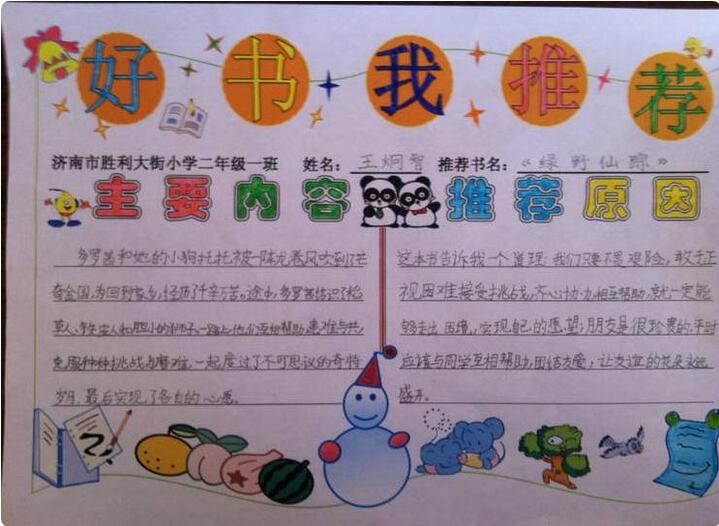 好书我推荐
济南市胜利大街小学二年级一班 姓名: 王炯智 推荐书名: 《绿野仙踪》
主要内容 推荐原因
多罗茜和她的小狗托托被一阵龙卷风吹到了芒
奇金国,为回到家乡,经历了千辛万苦。途中,多罗茜结识了稻
草人、铁皮人和胆小的狮子,一路上他们互相帮助,患难与共,
克服种种挑战与磨难,一起度过了不可思议的奇特
岁月,最后实现了各自的心愿。
这本书告诉我一个道理:我们只要不畏艰险,敢于正
视困难接受挑战,齐心协力,相互帮助,就一定能
够走出困境,实现自己的愿望;朋友是很珍贵的,平时
应该与同学互相帮助,团结友爱,让友谊的花朵永远
盛开。